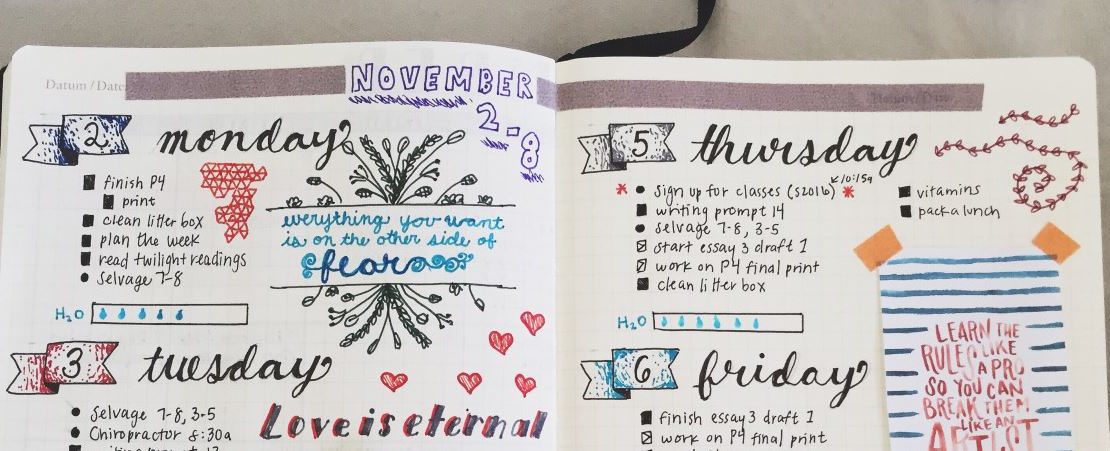 Datum / Date
NOVEMBER
2-8
2 monday
finish P4
print
clean litter box
plan the week
read twilight readings
Selvage 7-8
H₂O
everything you want
is on the other side of
fear
3 tuesday
Selvage 7-8, 3-5
Chiropractor 8:30a
Love is eternal
5 thursday
Sign up for classes (S2016) 10:15a
writing prompt 14
Selvage 7-8, 3-5
start essay 3 draft 1
work on P4 final print
clean litter box
vitamins
pack a lunch
H₂O
6 friday
finish essay 3 draft 1
work on P4 final print
LEARN THE
RULES LIKE
A PRO
SO YOU CAN
BREAK THEM
LIKE AN
ARTIST